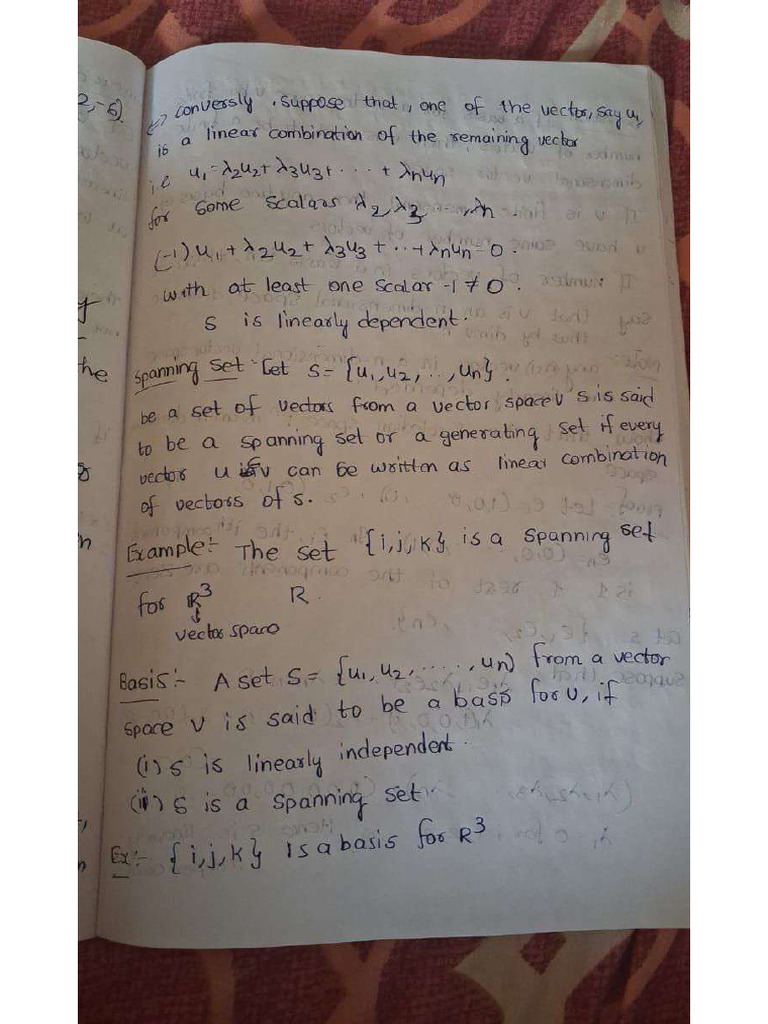 2,-6).
Conversly, suppose that, one of the vector, say u₁,
is a linear combination of the remaining vector
i.e u₁=λ₂u₂+λ₃u₃+...+λnun
for some scalars λ₂,λ₃ --,λn.
(-1)u₁+λ₂u₂+λ₃u₃+..+λnun=0.
with at least one scalar -1≠0.
S is linearly dependent.
he
Spanning set:- Let S={u₁,u₂,..,un}.
be a set of vectors from a vector space V S is said
to be a spanning set or a generating set if every
vector u ∈ V can be written as linear combination
of vectors of S.
Example:- The set {i,j,k} is a spanning set
for R³ R.
vector space
Basis:- A set S={u₁,u₂,.....,un} from a vector
space V is said to be a basis for V, if
(i) S is linearly independent.
(ii) S is a spanning set
Ex:- {i,j,k} is a basis for R³